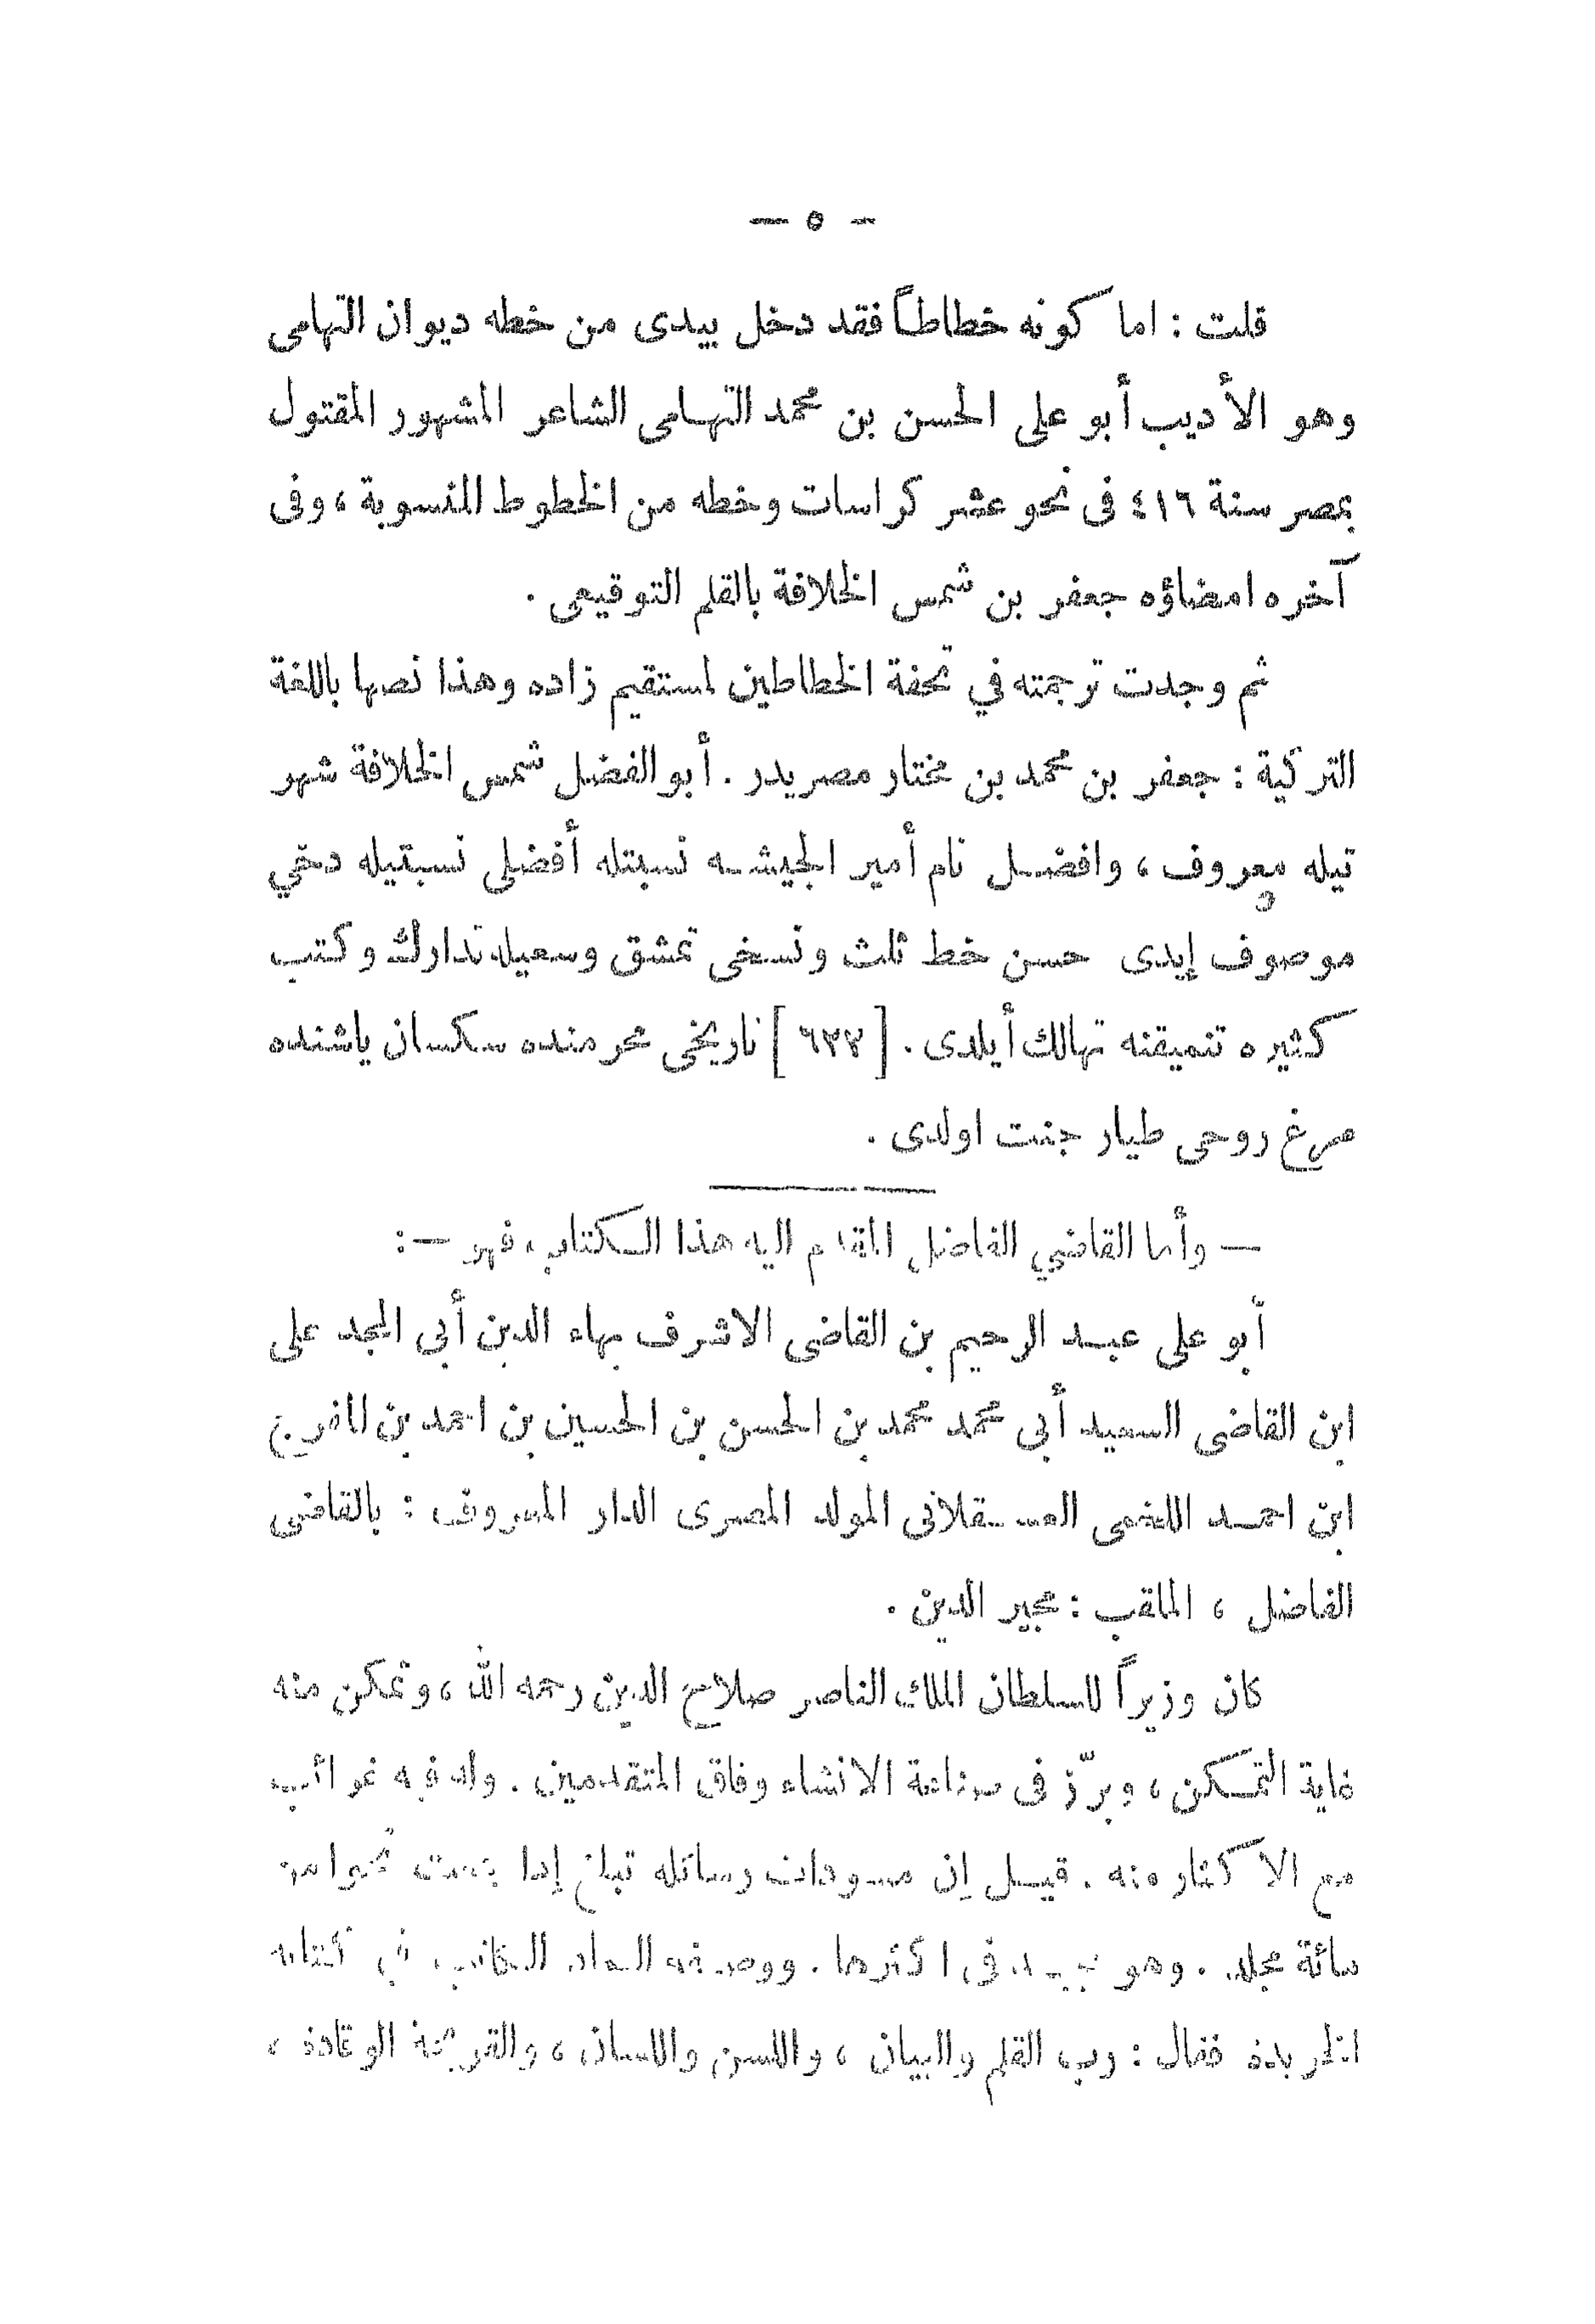 — ٥ —
قلت : اما كونه خطاطاً فقد دخل بيدى من خطه ديوان التهامى
وهو الأديب أبو على الحسن بن محمد التهامى الشاعر المشهور المقتول
بمصر سنة ٤١٦ فى نحو عشر كراسات وخطه من الخطوط المنسوبة ، وفى
آخره امضاؤه جعفر بن شمس الخلافة بالقلم التوقيعى .
ثم وجدت ترجمته في تحفة الخطاطين لمستقيم زاده وهذا نصها باللغة
التركية : جعفر بن محمد بن مختار مصريدر . أبو الفضل شمس الخلافة شهر
تيله معروف ، وافضل نام أمير الجيشه نسبتله أفضلى نسبتيله دخي
موصوف إيدى حسن خط ثلث ونسخى تمشق وسعيله تدارك وكتب
كثيره تنميقنه تهالك أيلدى . [ ٦٢٢ ] تاريخى محرمنده سكسان ياشنده
مرغ روحى طيار جنت اولدى .
— وأما القاضي الفاضل المقدم اليه هذا الكتاب ، فهو — :
أبو على عبد الرحيم بن القاضى الاشرف بهاء الدين أبى المجد على
ابن القاضى السعيد أبى محمد محمد بن الحسن بن الحسين بن احمد بن المفرج
ابن احمد اللخمى العسقلانى المولد المصرى الدار المعروف : بالقاضى
الفاضل ، الملقب : مجير الدين .
كان وزيراً للسلطان الملك الناصر صلاح الدين رحمه الله ، وتمكن منه
غاية التمكن ، وبرّز فى صناعة الانشاء وفاق المتقدمين . وله فيه غرائب
مع الاكثار منه . قيل إن مسودات رسائله تبلغ إذا جمعت نحوا من
مائة مجلد . وهو مجيد فى اكثرها . ووصفه العماد الكاتب في كتابه
الخريدة فقال : رب القلم والبيان ، واللسن واللسان ، والقريحة الوقادة ،